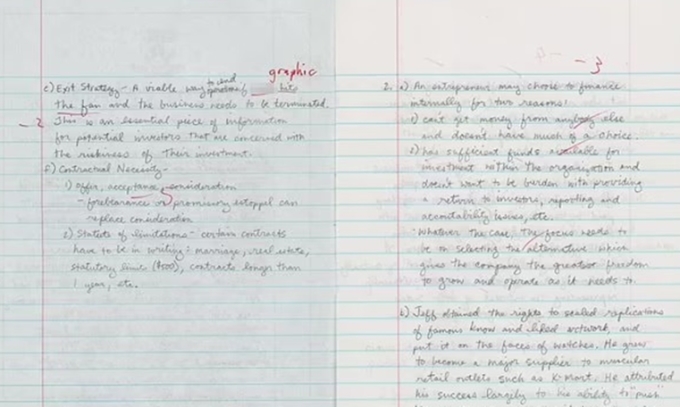 graphic
to end operations if
c) Exit Strategy - A viable way hits
the fan and the business needs to be terminated.
-2
This is an essential piece of information
for potential investors that are concerned with
the riskiness of their investment.
f) Contractual Necessity -
1) offer, acceptance, consideration
- forebearance or promissory estoppel can
replace consideration
2) Statute of limitations - certain contracts
have to be in writing: marriage, real estate,
statutory limits ($500), contracts longer than
1 year, etc.
-3
2. a) An entrepreneur may choose to finance
internally for two reasons:
1) can't get money from anybody else
and doesn't have much of a choice.
2) has sufficient funds available for
investment within the organization and
doesn't want to be burden with providing
a return to investors, reporting and
accountability issues, etc.
Whatever the case, the focus needs to
be on selecting the alternative which
gives the company the greatest freedom
to grow and operate as it needs to.
b) Jeff obtained the rights to scaled replications
of famous know and liked artwork, and
put it on the faces of watches. He grew
to become a major supplier to
retail outlets such as K-Mart. He attributed
his success largely to his ability to "push"